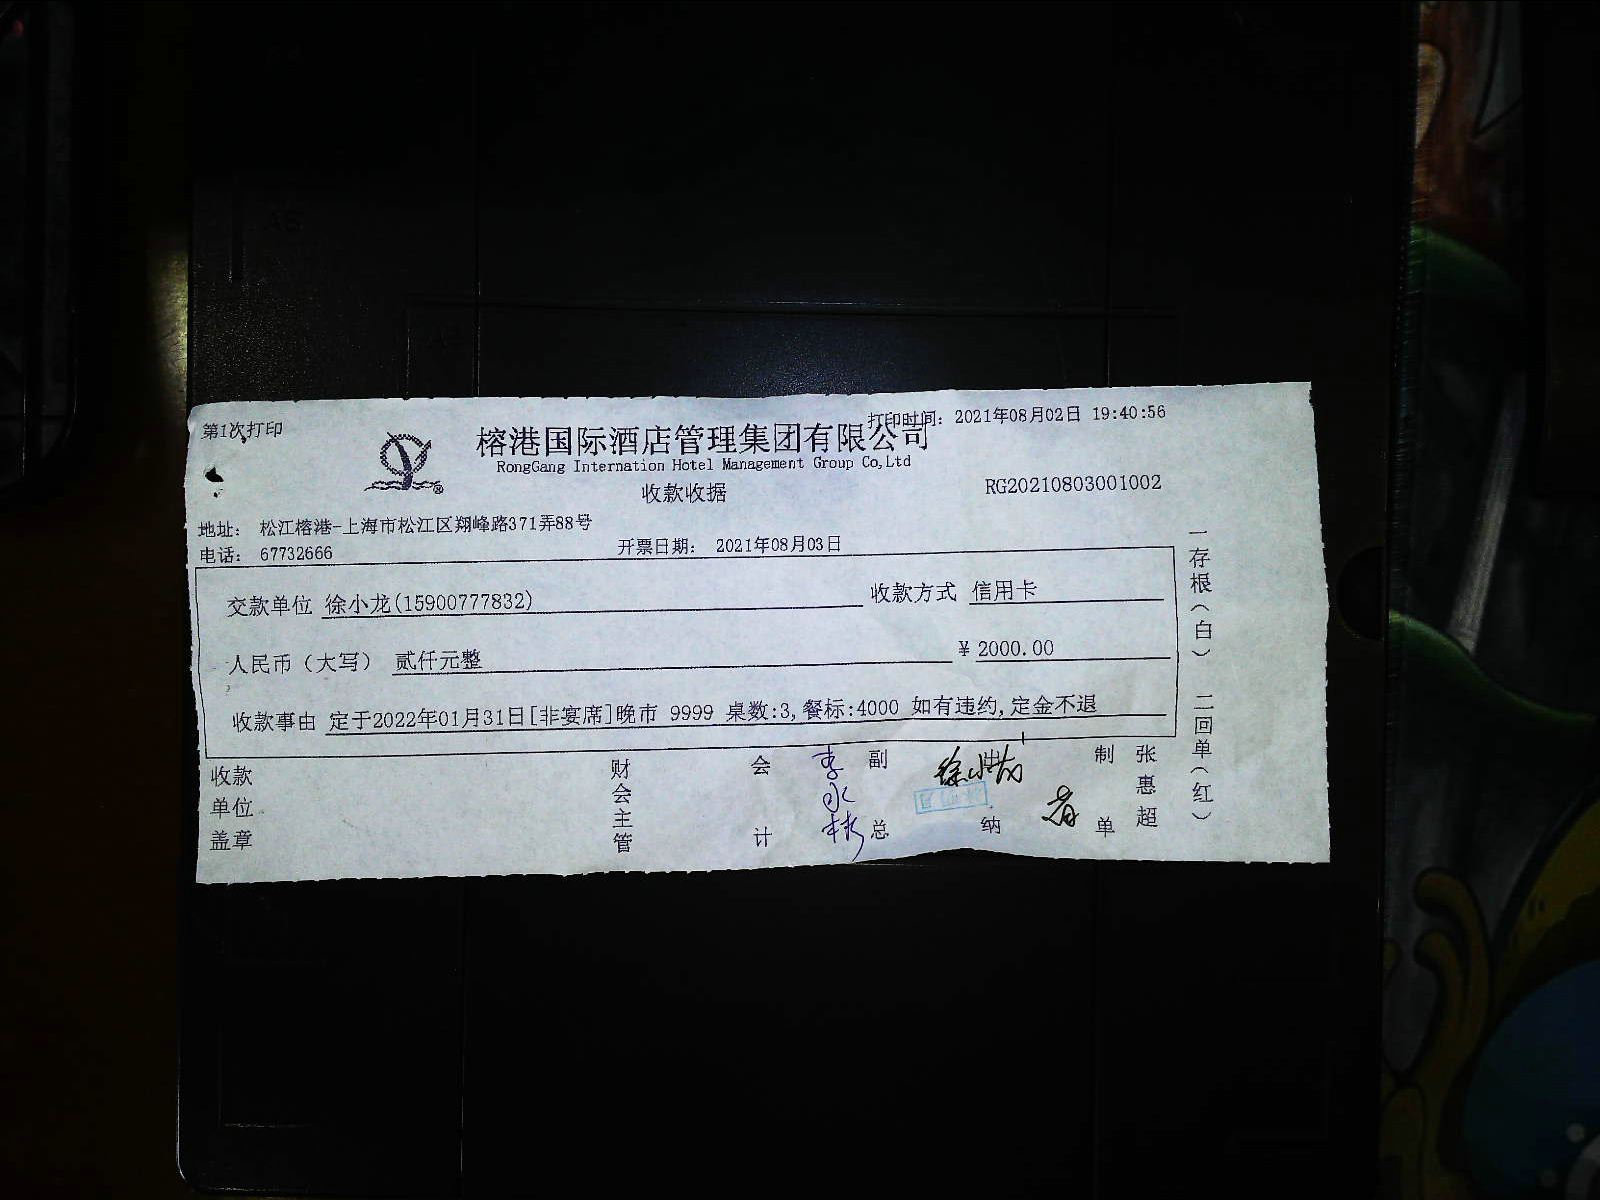 第1次打印
打印时间: 2021年08月02日 19:40:56
榕港国际酒店管理集团有限公司
RongGang Internation Hotel Management Group Co,Ltd
收款收据
RG20210803001002
地址: 松江榕港-上海市松江区翔峰路371弄88号
电话: 67732666
开票日期: 2021年08月03日
交款单位 徐小龙(15900777832) 收款方式 信用卡
人民币(大写) 贰仟元整 ¥ 2000.00
收款事由 定于2022年01月31日[非宴席]晚市 9999 桌数:3,餐标:4000 如有违约,定金不退
收款单位盖章
财会主管
会计
李永彬
副总
纳
制单
张惠超
一存根(白) 二回单(红)